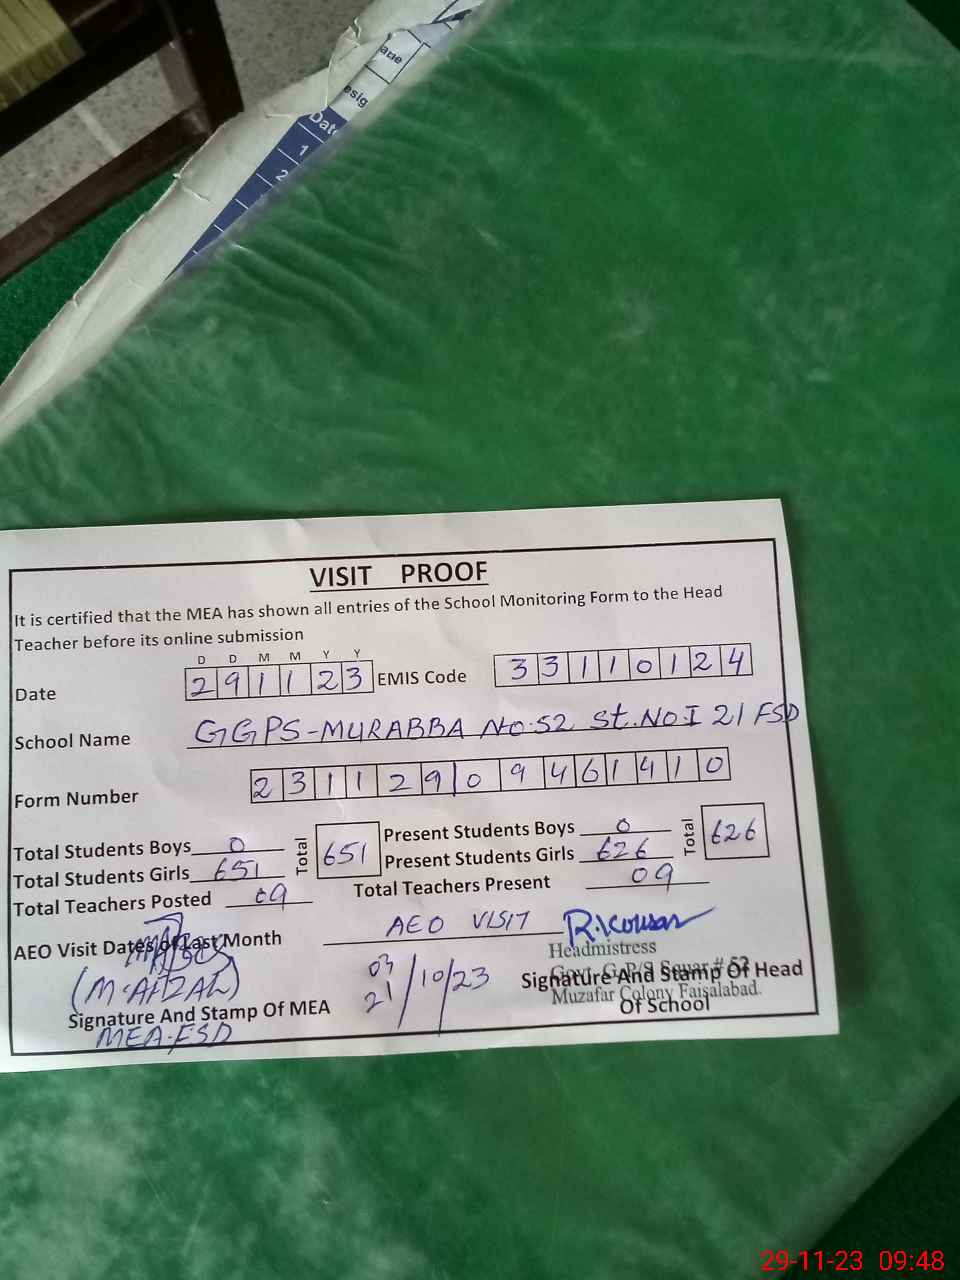 ame
esig
Dat
1
2
VISIT PROOF
It is certified that the MEA has shown all entries of the School Monitoring Form to the Head
Teacher before its online submission
D D M M Y Y
Date 291123 EMIS Code 33110124
School Name GGPS-MURABBA NO.52 St.NO I 21 FSD
Form Number 23112909461410
Total Students Boys 0 Total 651 Present Students Boys 0 Total 626
Total Students Girls 651 Present Students Girls 626
Total Teachers Posted 09 Total Teachers Present 09
AEO Visit Dates of Last Month AEO VISIT R.Kousar
Headmistress
(M.AFZAL) 03 21/10/23 Signature And Stamp Of Head
Govt. G.P/S Squar # 52
Muzafar Colony Faisalabad.
Signature And Stamp Of MEA Of School
MEA-FSD
29-11-23 09:48